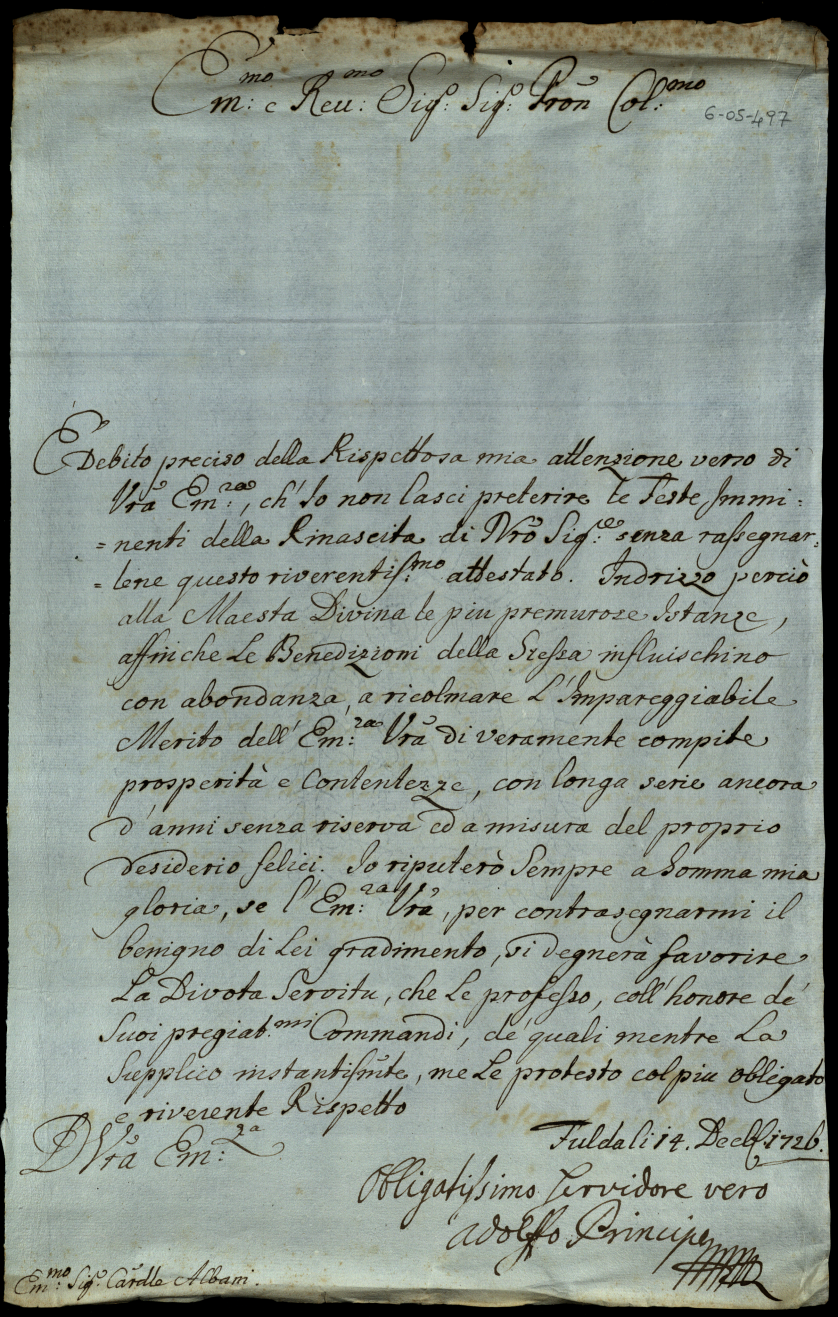 Em:mo e Reu:mo Sig:e Sig:e Pron Col:mo
6-05-497
È Debito preciso della Rispettosa mia attenzione verso di
Vrã Em:za, ch'Io non lasci preterire le Feste Immi=
=nenti della Rinascita di Nrõ Sig:e senza rassegnar=
=lene questo riverentiss:mo attestato. Indrizzo perciò
alla Maesta Divina le piu premurose Istanze,
affinche Le Benedizzioni della Stessa influischino
con abondanza, a ricolmare L'Impareggiabile
Merito dell'Em:za Vrã di veramente compite
prosperità e Contentezze, con longa serie ancora
d'anni senza riserva ed a misura del proprio
desiderio felici. Io riputerò Sempre a Somma mia
gloria, se l'Em:za Vrã, per contrasegnarmi il
benigno di Lei gradimento, si degnerà favorire
La Divota Servitu, che Le professo, coll'honore de'
Suoi pregiat:mi Commandi, de' quali mentre La
Supplico instantissmte, me Le protesto col piu obligato
e riverente Rispetto
D Vrã Em:za
Fulda li 14. Decb. 1726.
Obligatissimo servidore vero
Adolffo Principe
Em:mo Sig:e Cardle Albani.